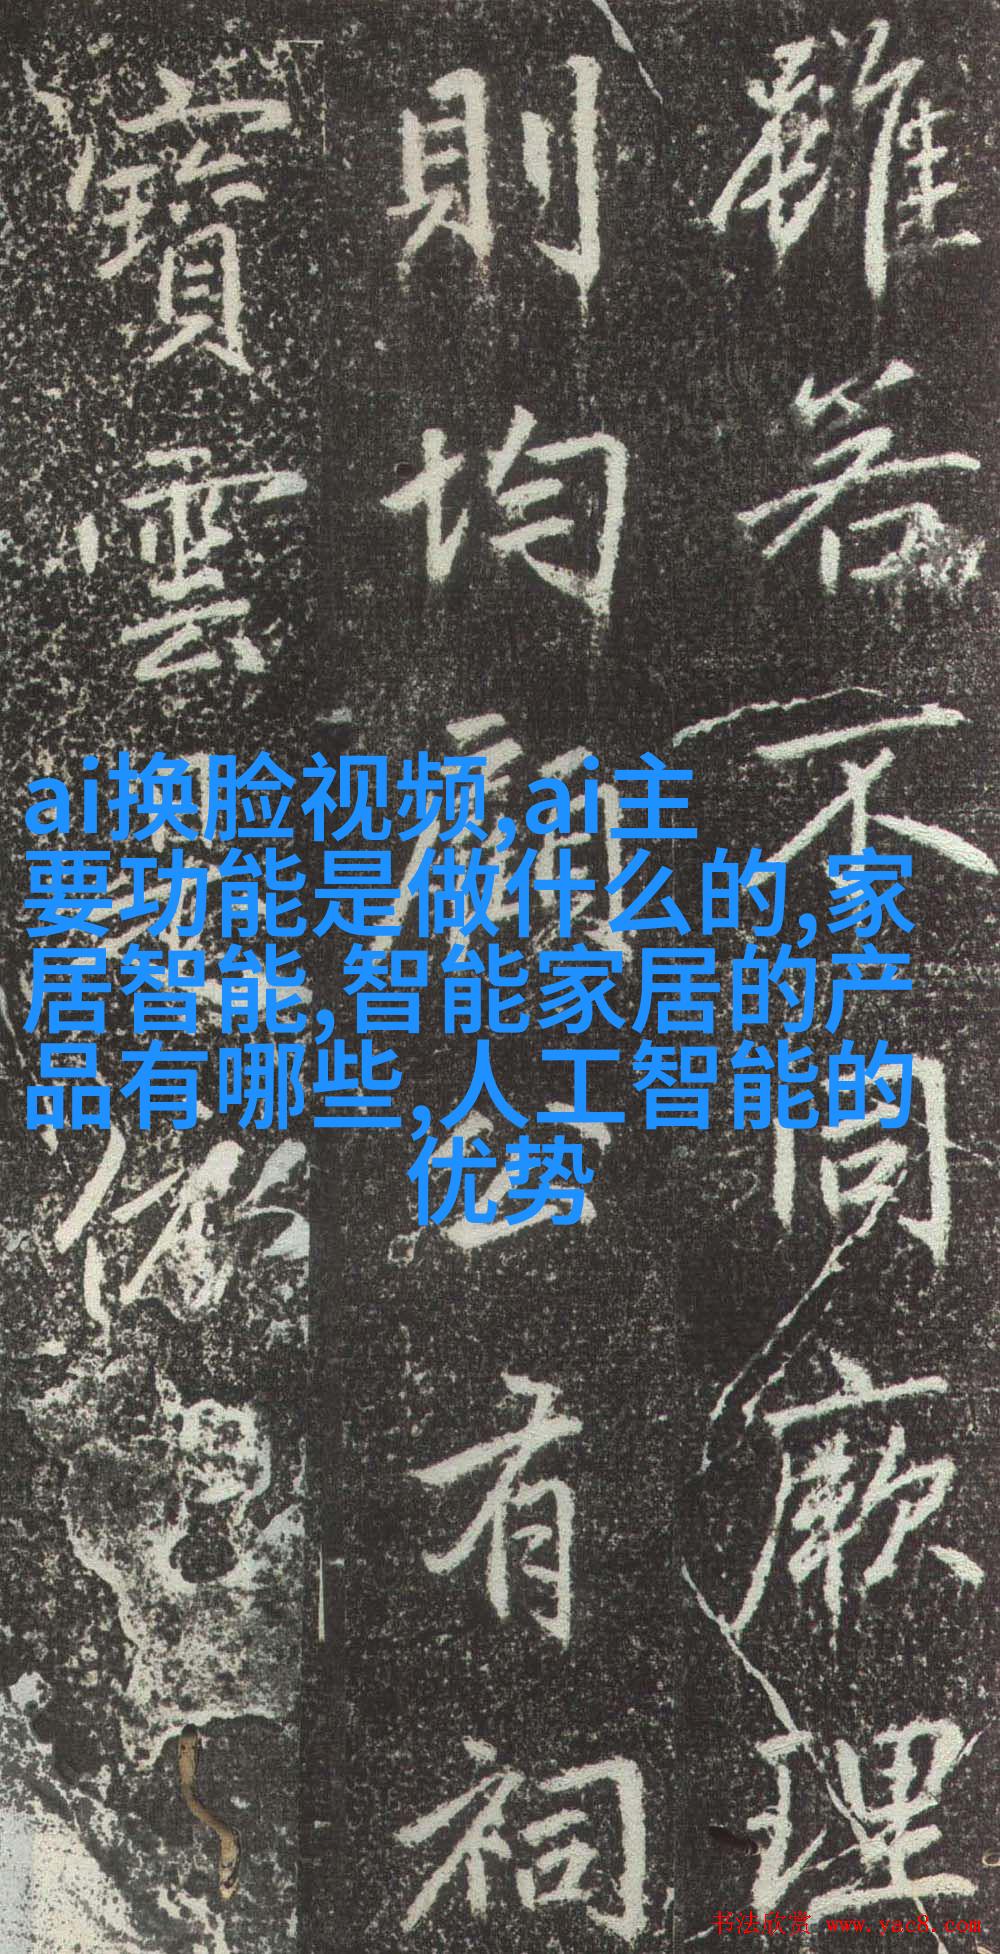 雖若不同厥理
則均顧
有祠
寶雲
ai换脸视频,ai主
要功能是做什么的,家
居智能,智能家居的产
品有哪些,人工智能的
优势
书法欣赏 www.yac8.com